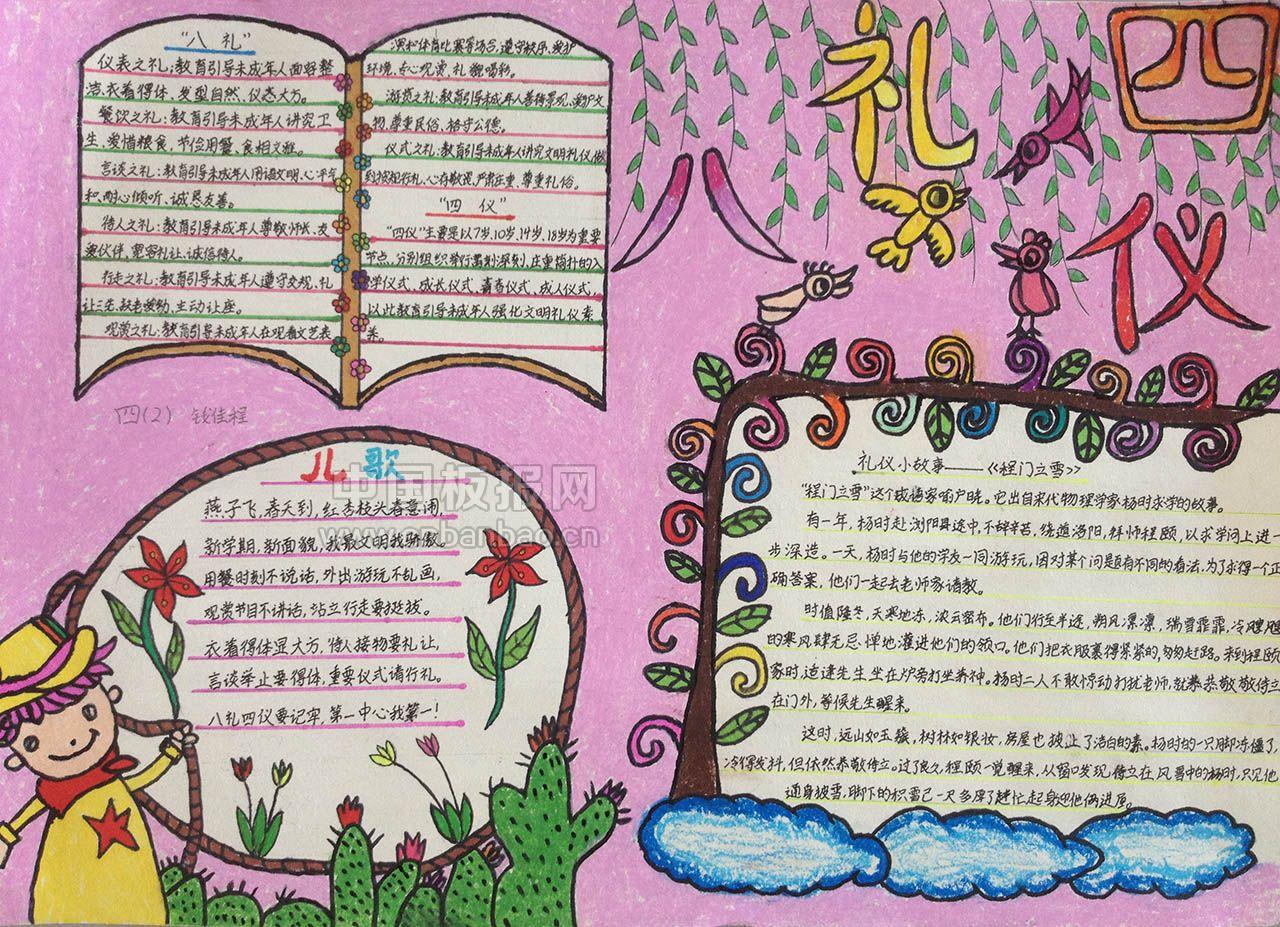 八礼四仪
“八 礼”
仪表之礼：教育引导未成年人面容整
洁、衣着得体、发型自然、仪态大方。
餐饮之礼：教育引导未成年人讲究卫
生、爱惜粮食、节俭用餐、食相文雅。
言谈之礼：教育引导未成年人用语文明、心平气
和、耐心倾听、诚恳友善。
待人之礼：教育引导未成年人尊敬师长、友
爱伙伴、宽容礼让、诚信待人。
行走之礼：教育引导未成年人遵守交规、礼
让三先、扶老助幼、主动让座。
观赏之礼：教育引导未成年人在观看文艺表
演和体育比赛等场合，遵守秩序、爱护
环境、专心观赏、礼貌喝彩。
游览之礼：教育引导未成年人善待景观、爱护文
物、尊重民俗、恪守公德。
仪式之礼：教育引导未成年人讲究文明礼仪，做
到按规行礼、心存敬畏、严肃庄重、尊重礼俗。
“四 仪”
“四仪”主要是以7岁、10岁、14岁、18岁为重要
节点，分别组织举行深刻、庄重简朴的入
学仪式、成长仪式、青春仪式、成人仪式，
以此教育引导未成年人强化文明礼仪素
养。
四（2） 钱佳程
儿歌
燕子飞，春天到，红杏枝头春意闹，
新学期，新面貌，我最文明我骄傲。
用餐时刻不说话，外出游玩不乱画，
观赏节目不讲话，站立行走要挺拔。
衣着得体显大方，待人接物要礼让，
言谈举止要得体，重要仪式请行礼。
八礼四仪要记牢，第一中心我第一！
中国板报网
礼仪小故事——《程门立雪》
“程门立雪”这个成语家喻户晓。它出自宋代物理学家杨时求学的故事。
有一年，杨时赴浏阳县途中，不辞辛苦，绕道洛阳，拜师程颐，以求学问上进一
步深造。一天，杨时与他的学友一同游玩，因对某个问题有不同的看法，为了求得一个正
确答案，他们一起去老师家请教。
时值隆冬，天寒地冻，浓云密布。他们行至半途，朔风凛凛，瑞雪霏霏，冷飕飕
的寒风肆无忌惮地灌进他们的领口。他们把衣服裹得紧紧的，匆匆赶路。来到程颐
家时，适逢先生坐在炉旁打坐养神。杨时二人不敢惊动打扰老师，就恭恭敬敬侍立
在门外，等候先生醒来。
这时，远山如玉簇，树林如银妆，房屋也披上了洁白的素。杨时的一只脚冻僵了，
冷得发抖，但依然恭敬侍立。过了良久，程颐一觉醒来，从窗口发现侍立在风雪中的杨时，只见他
通身披雪，脚下的积雪已一尺多厚了，赶忙起身迎他俩进屋。